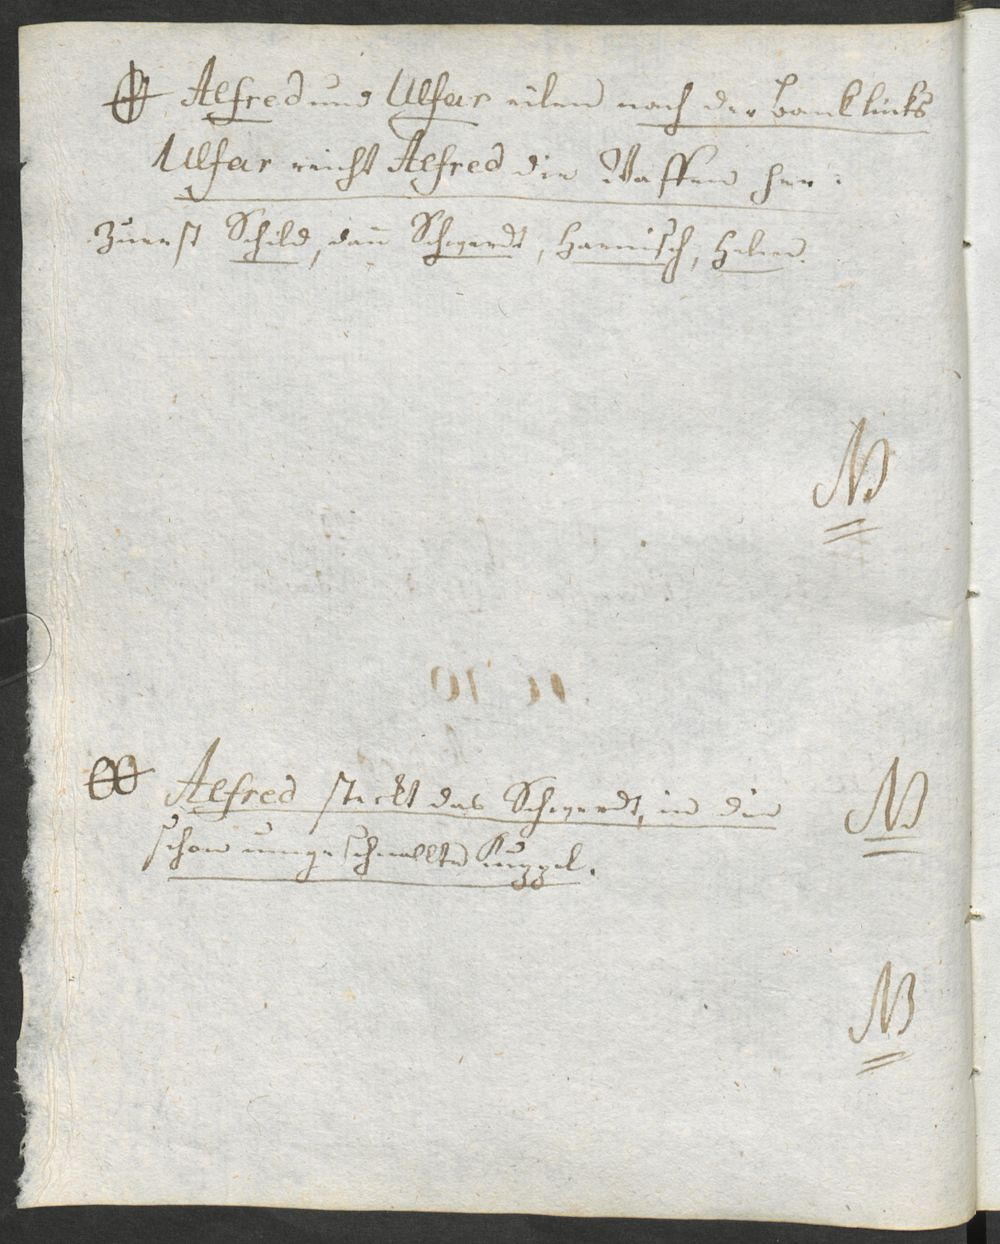 Alfred und Ulfar eilen nach der bank links
Ulfar reicht Alfred die Waffen her:
zuerst Schild, dañ Schwerdt, Harnisch, Helm.
NB
Alfred steckt das Schwerdt, in die
NB
schon umgeschnallte Kuppel.
NB